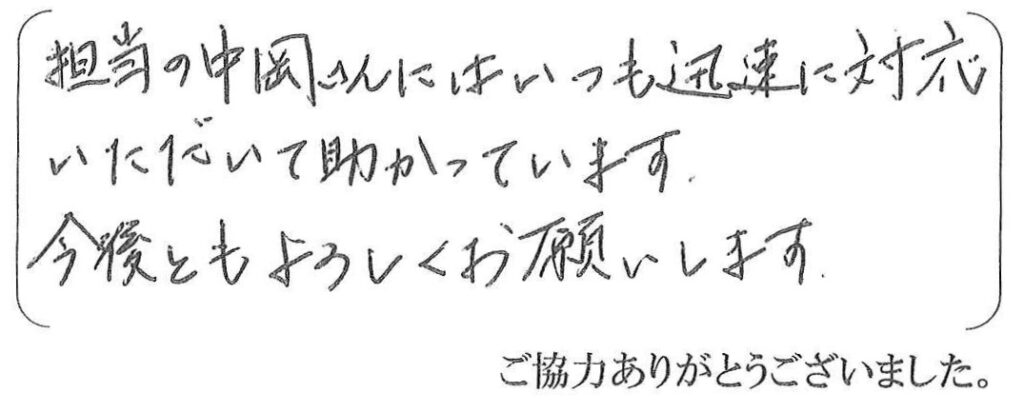 担当の中岡さんにはいつも迅速に対応
いただいて助かっています.
今後ともよろしくお願いします.
ご協力ありがとうございました。